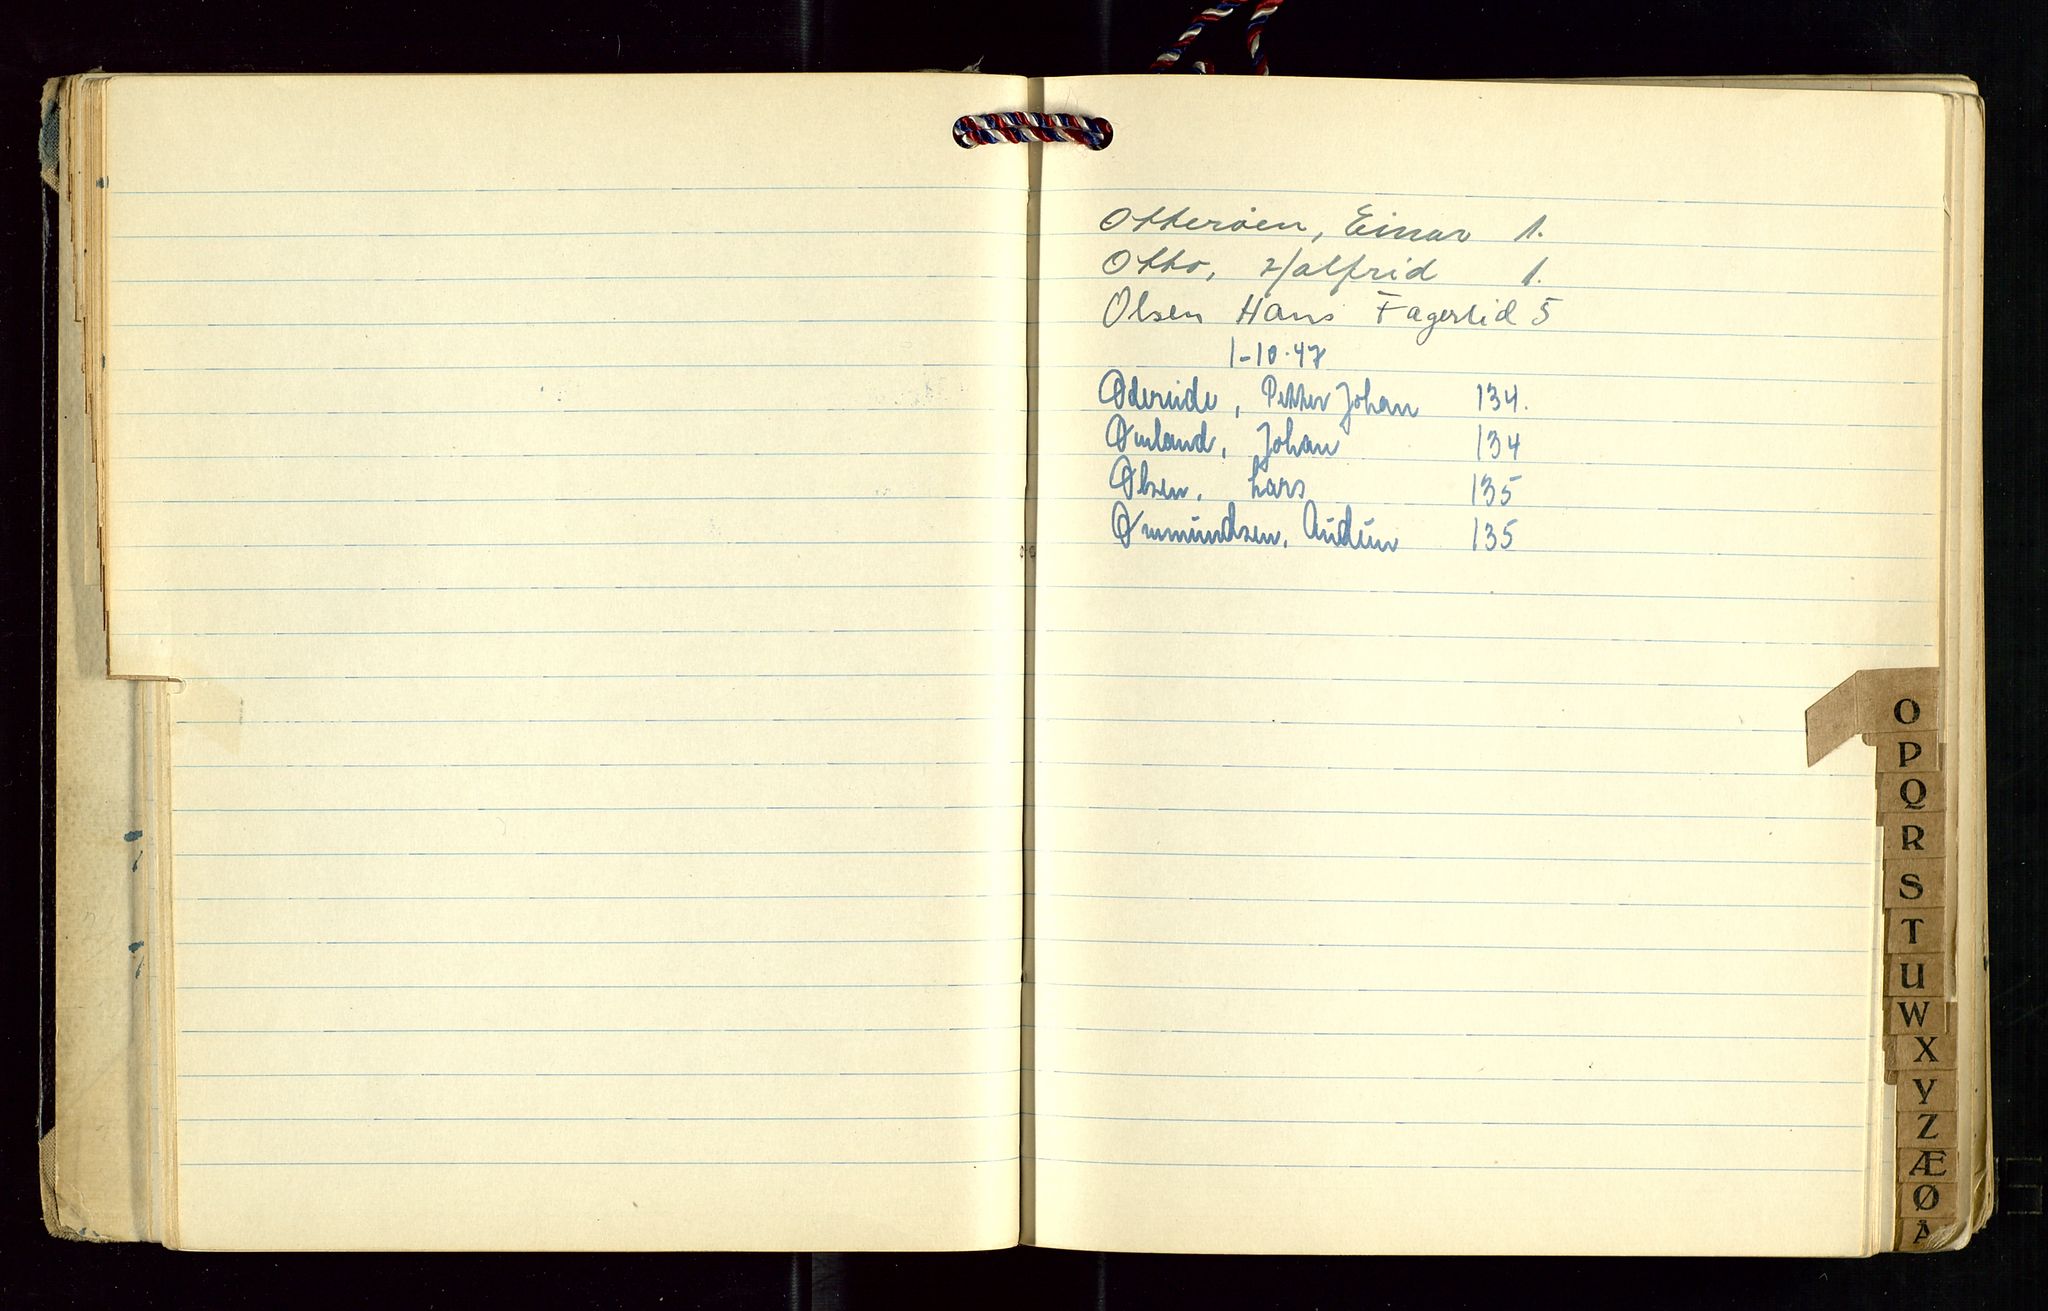 Otterøen, Einar 1.
Otto, Halfrid 1.
Olsen Hans Fagerlid 5
1-10-47
Ødereide, Petter Johan 134.
Ømland, Johan 134
Olsen, Lars 135
Ommundsen, Audun 135
O
P
Q
R
S
T
U
W
X
Y
Z
Æ
Ø
Å